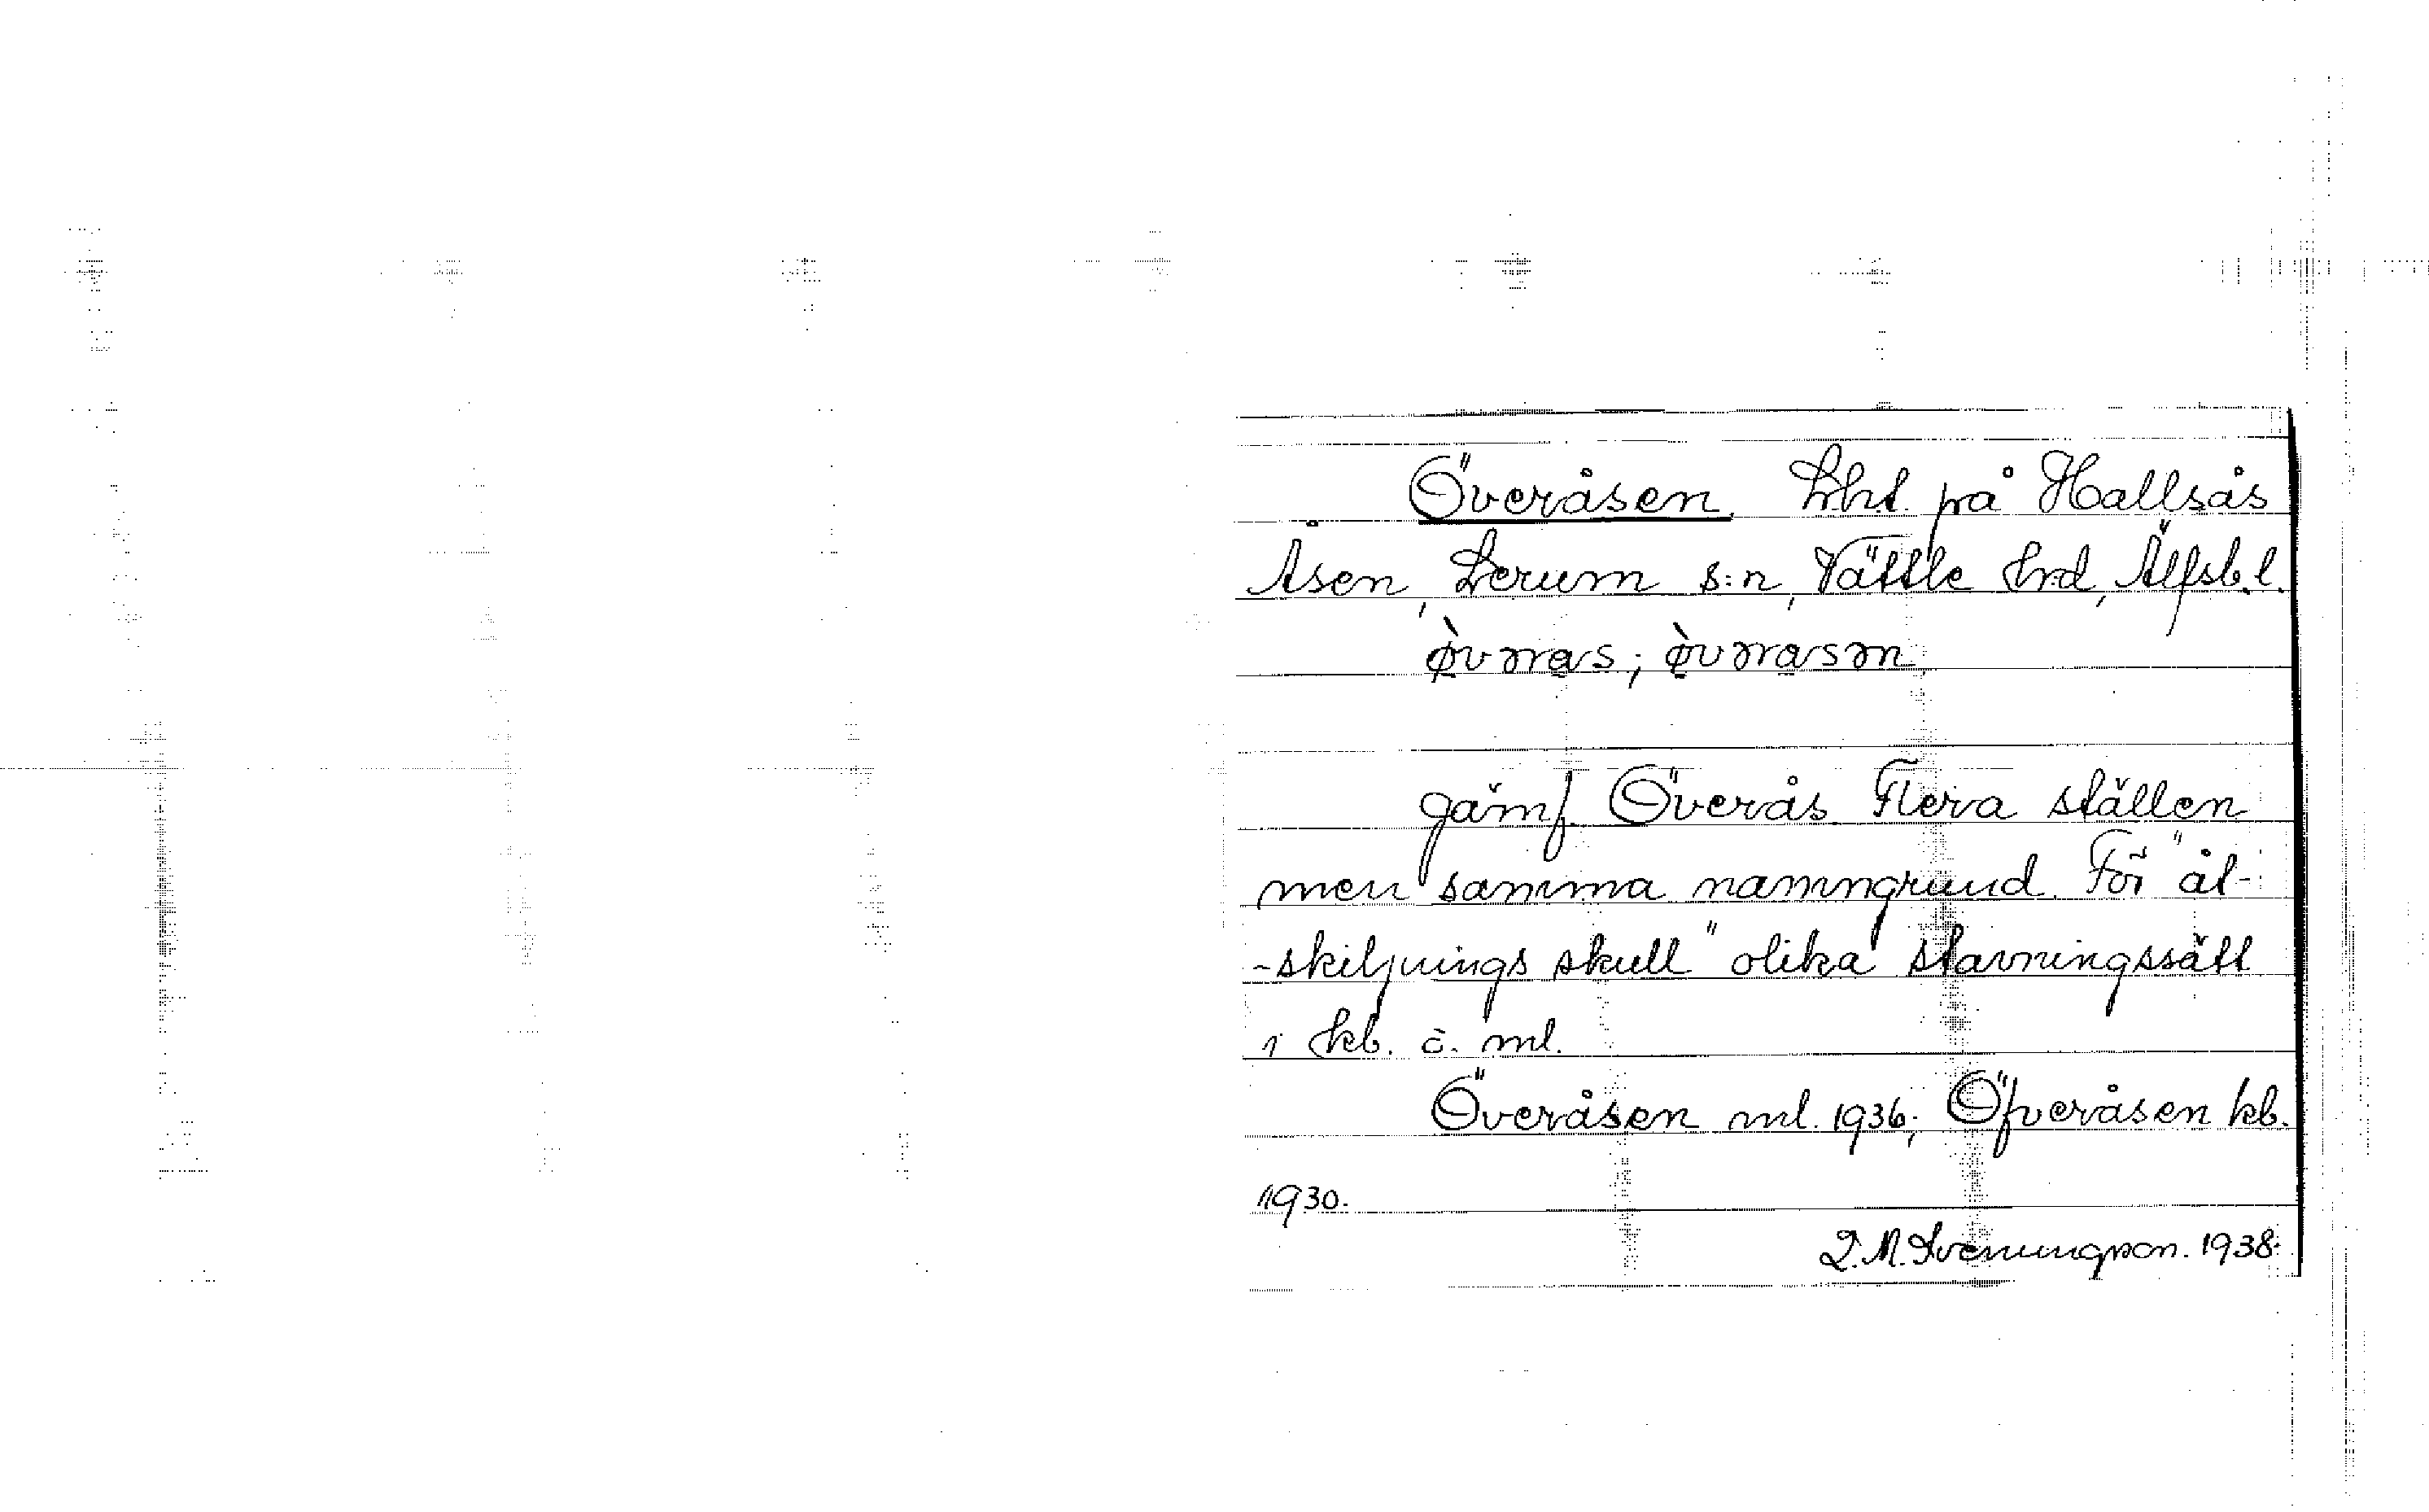 Överåsen, Lht. på Hallsås
Åsen, Lerum s:n, Vättle hrd, Älfsb. l.
ø̀vəras; ø̀vərasən
Jämf. Överås. Flera ställen
men samma namngrund. För "åt-
-skiljnings skull" olika stavningssätt
i kb. o. ml.
Överåsen ml. 1936; Öfveråsen kb.
1930.
L.M. Svenungson. 1938.